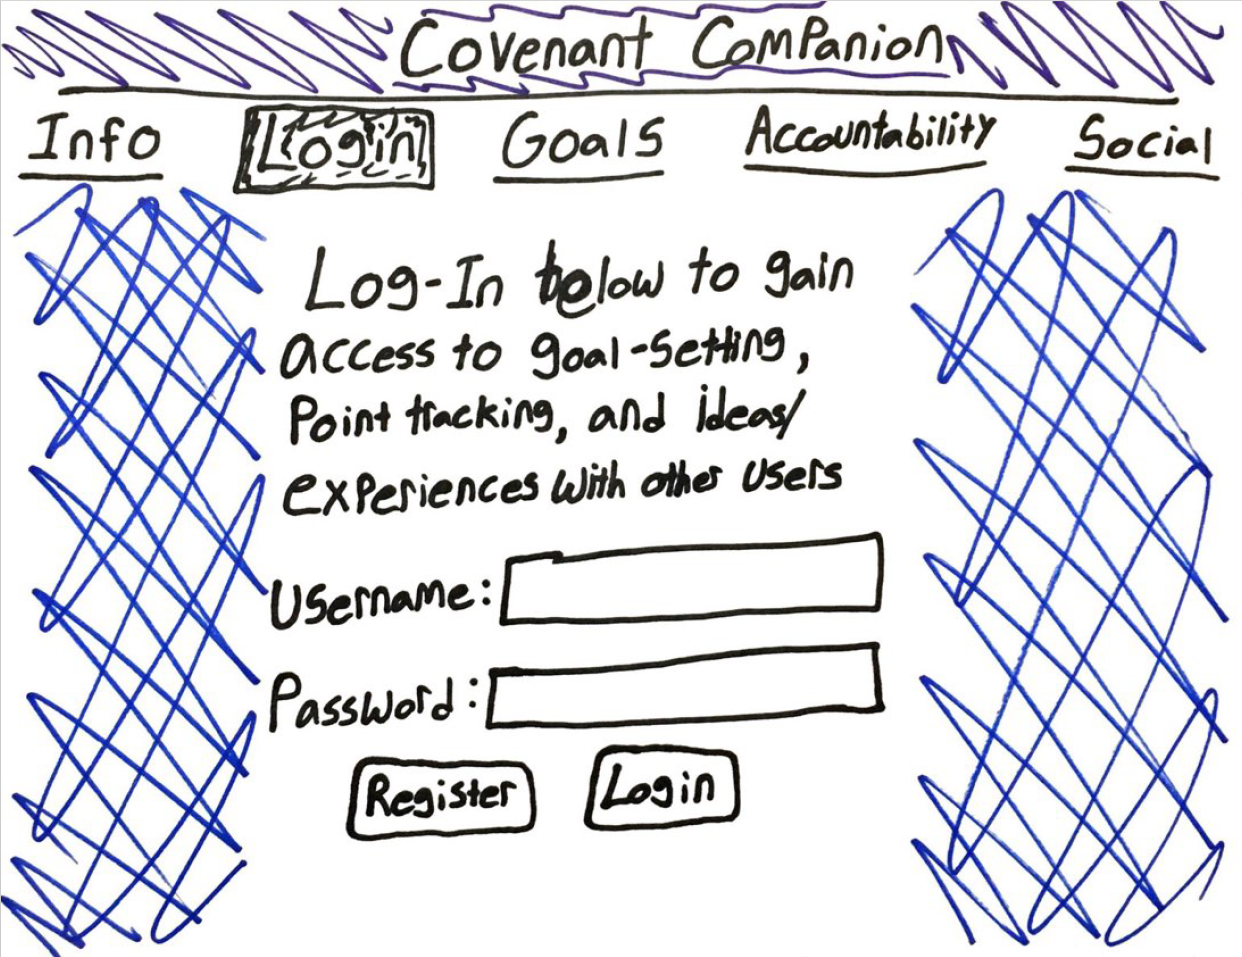 Covenant Companion
Info Login Goals Accountability Social
Log-In below to gain
access to goal-setting,
Point tracking, and ideas/
experiences with other users
Username:
Password:
Register Login